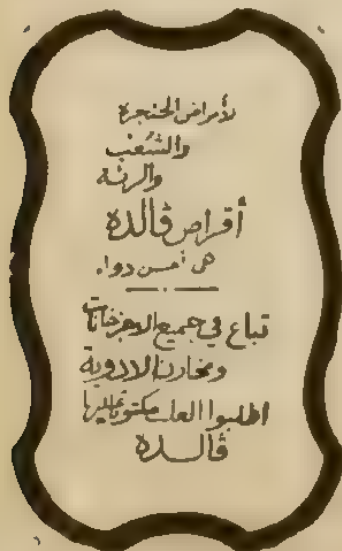 لأمراض الحنجرة
والشعب
والرئة
أقراص ڤالده
هى أحسن دواء
تباع في جميع الاجزخانات
ومخازن الادوية
اطلبوا العلب مكتوبا عليها
ڤالده